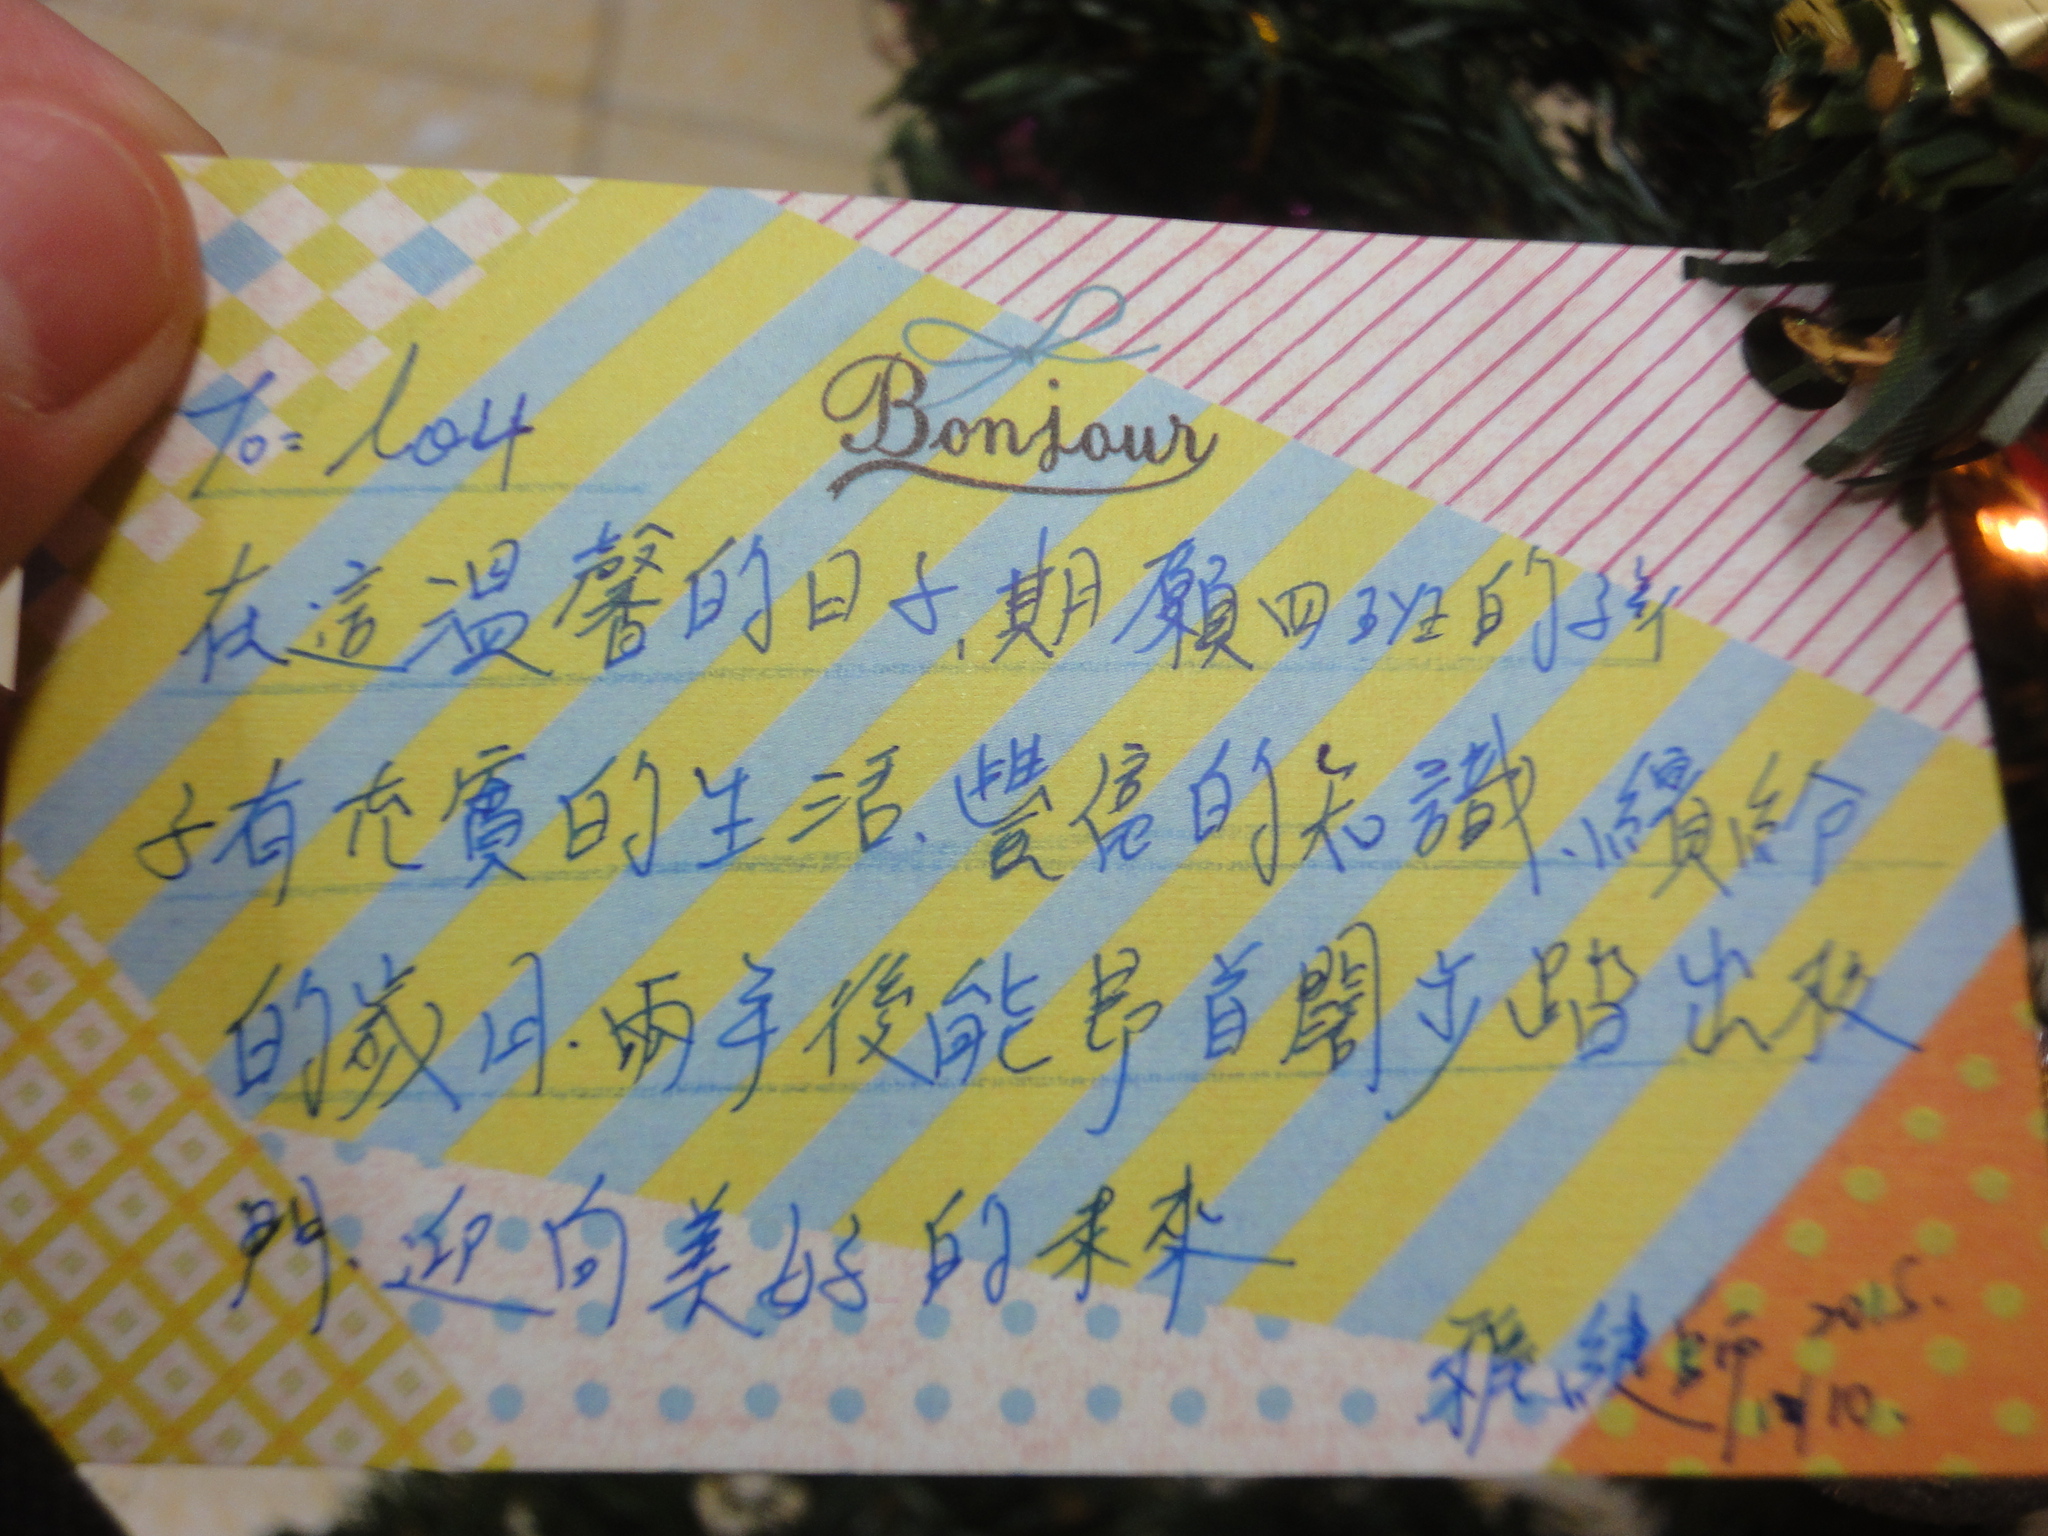 Bonjour
To = 104
在這溫馨的日子,期願四班的孩
子有充實的生活、豐富的知識、繽紛
的歲月.兩年後能昂首闊步踏出校
門.迎向美好的未來
師 2015.
12/10.